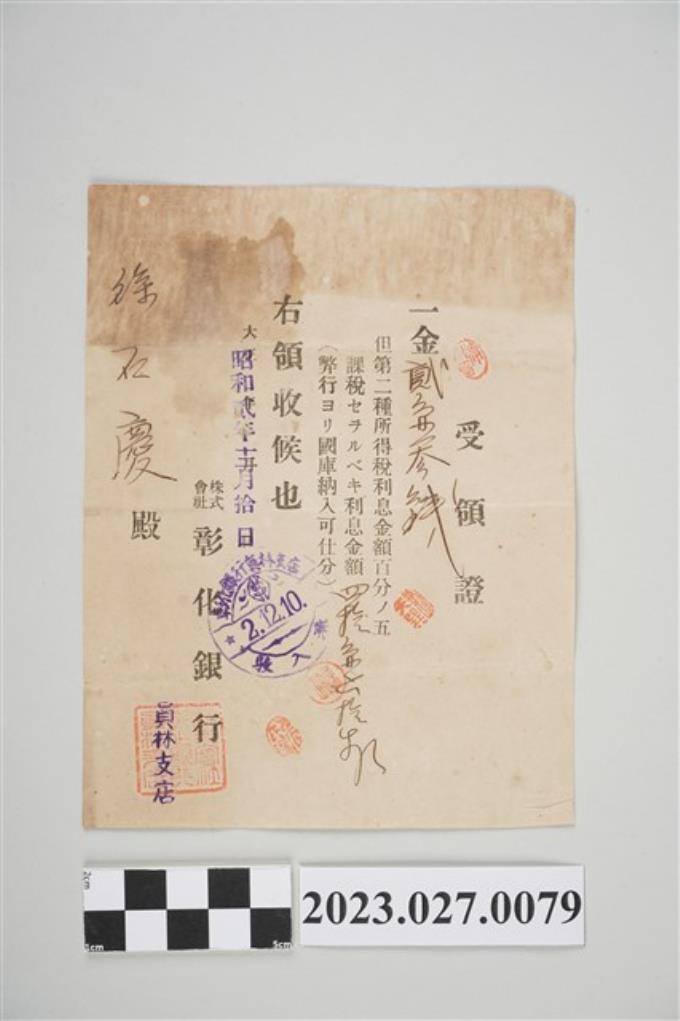 受領證
一金貳圓叁錢
但第二種所得稅利息金額百分ノ五
課稅セラルベキ利息金額四拾圓
(弊行ヨリ國庫納入可仕分)
右領收候也
大
昭和貳年十二月拾日
株式會社彰化銀行
員林支店
徐石慶殿
2.12.10.
收入
2cm
1cm
5cm
2023.027.0079